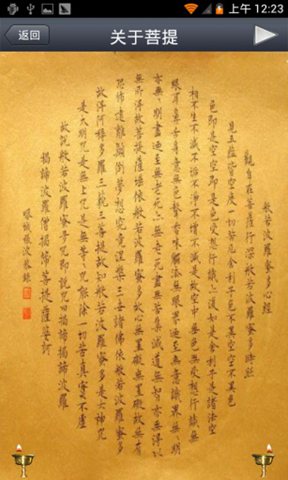 上午 12:23
返回
关于菩提
般若波羅蜜多心經
觀自在菩薩行深般若波羅蜜多時照
見五蘊皆空度一切苦厄舍利子色不異空空不異色
色即是空空即是色受想行識亦復如是舍利子是諸法空
相不生不滅不垢不淨不增不減是故空中無色無受想行識無
眼耳鼻舌身意無色聲香味觸法無眼界乃至無意識界無無明
亦無無明盡乃至無老死亦無老死盡無苦集滅道無智亦無得以
無所得故菩提薩埵依般若波羅蜜多故心無罣礙無罣礙故無有
恐怖遠離顛倒夢想究竟涅槃三世諸佛依般若波羅蜜多
故得阿耨多羅三藐三菩提故知般若波羅蜜多是大神咒
是大明咒是無上咒是無等等咒能除一切苦真實不虛
故說般若波羅蜜多咒即說咒曰揭諦揭諦波羅
揭諦波羅僧揭諦菩提薩婆訶